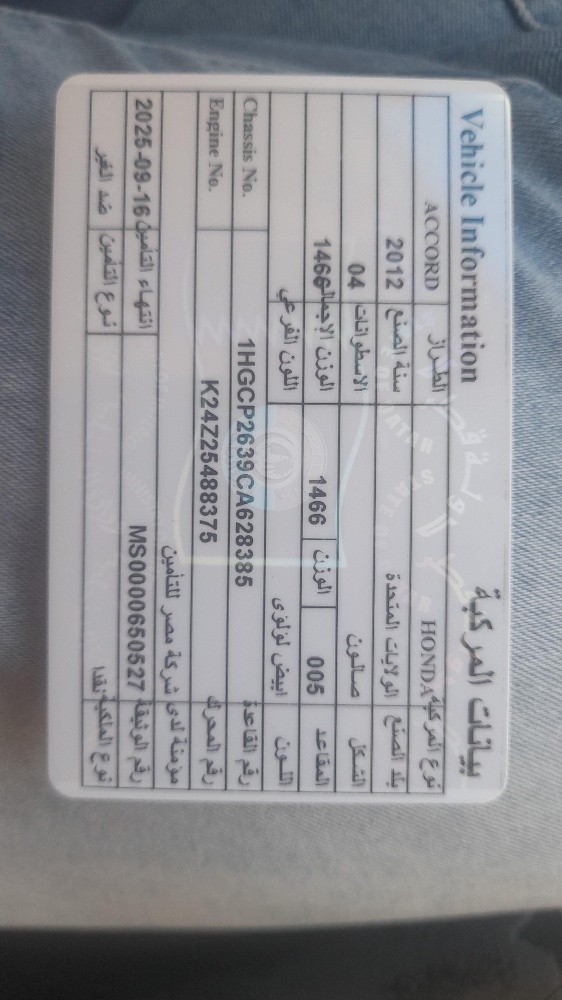 Vehicle Information بيانات المركبة
نوع المركبة HONDA الطراز ACCORD
بلد الصنع الولايات المتحدة سنة الصنع 2012
الشكل صالون الاسطوانات 04
المقاعد 005 الوزن 1466 الوزن الإجمالي 1466
اللون ابيض لولوى اللون الفرعي
رقم القاعدة 1HGCP2639CA628385 Chassis No.
رقم المحرك K24Z25488375 Engine No.
مؤمنة لدى شركة مصر للتأمين
رقم الوثيقة MS0000650527 انتهاء التأمين 2025-09-16
نوع الملكية نقدا نوع التأمين ضد الغير